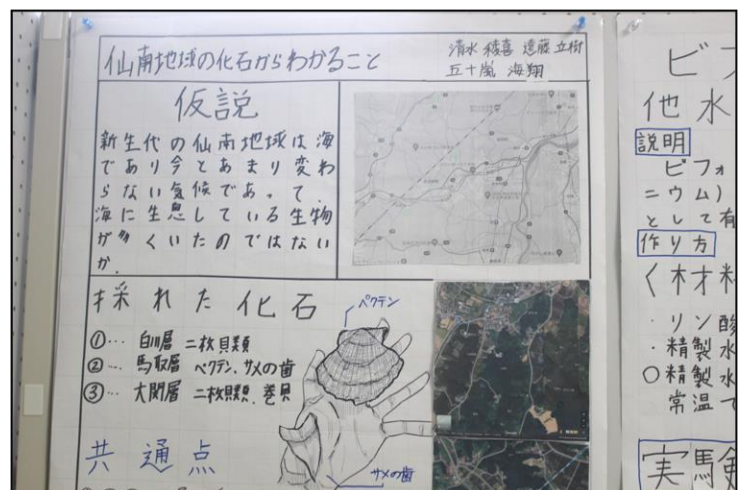 仙南地域の化石からわかること
清水 稜喜 遠藤 立樹
五十嵐 海翔
仮説
新生代の仙南地域は海
であり今とあまり変わ
らない気候であって
海に生息している生物
がくいたのではない
か.
採れた化石
ペクテン
①… 白川層 二枚貝類
②… 馬取層 ペクテン、サメの歯
③… 大関層 二枚貝類、巻貝
サメの歯
共通点
ビフ
他 水
説明
ビフォ
ニウム)
として有
作り方
く材料
・リン酸
・精製水
○精製水
常温で
実験